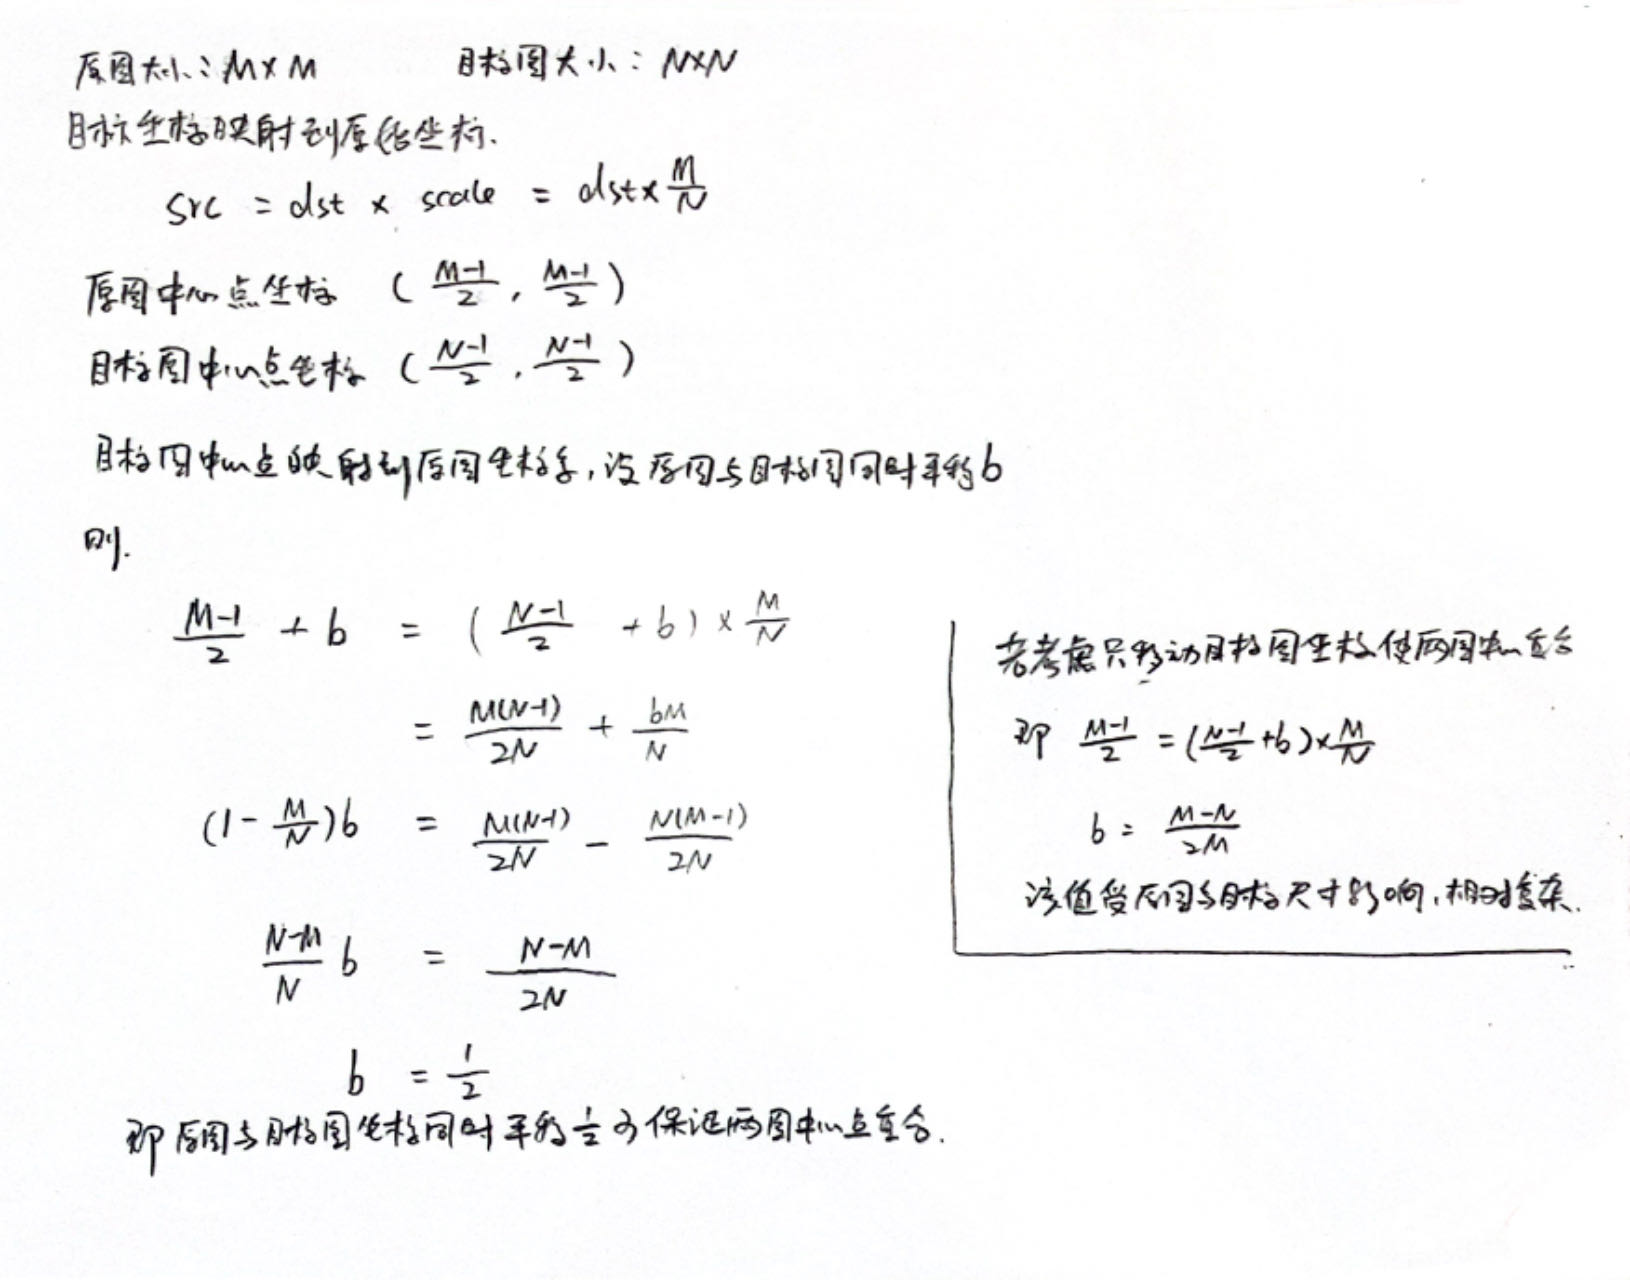 原图大小：M×M 目标图大小：N×N
目标坐标映射到原始坐标.
src = dst × scale = dst×M/N
原图中心点坐标 （(M-1)/2，(M-1)/2）
目标图中心点坐标（(N-1)/2，(N-1)/2）
目标图中心点映射到原图坐标系，设原图与目标图同时平移b
则.
(M-1)/2 + b = ((N-1)/2 + b) × M/N
= M(N-1)/2N + bM/N
(1-M/N)b = M(N-1)/2N - N(M-1)/2N
(N-M)/N b = (N-M)/2N
b = 1/2
即原图与目标图坐标同时平移1/2可保证两图中心点重合.
若考虑只移动目标图坐标使两图中心重合
即 (M-1)/2 = ((N-1)/2+b)×M/N
b = (M-N)/2M
该值受原图与目标尺寸影响，相对复杂.